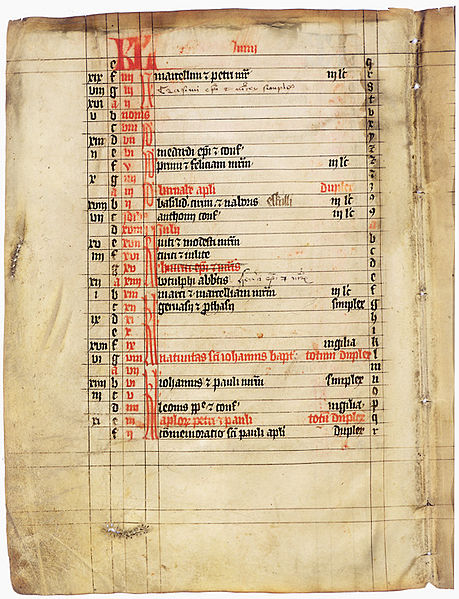 KL Junii
e q
xix f iiii N marcellini ⁊ petri mr̄ iij lc̄ r
viii g iii s
xvi a ii t
v b nonis v
c viii x
xiii d vii y
ii e vi medardi ep̄i ⁊ conf
f v primi ⁊ feliciani mr̄m iij lc̄
x g iiii
a iii barnabe apl̄i duplex
xviii b ii basilid cirini ⁊ naboris iij lc̄
vii c idib9 anthonij conf iij lc̄ 9
d xviii Julij a
xv e xvii viti ⁊ modesti mr̄m b
iiii f xvi cirici ⁊ iulite c
g xv ep̄i ⁊ mr̄is d
xii a xiiii botulphi abb̄tis e
i b xiii marci ⁊ marcelliani mr̄m iij lc̄ f
c xii geruasij ⁊ ꝓthasij simplex g
ix d xi h
e x i
xvii f ix vigilia k
vi g viii natiuitas sc̄i iohannis bapt totum duplex l
a vii m
xiiii b vi iohannis ⁊ pauli mr̄m simplex n
iii c v o
d iiii leonis pp̄e ⁊ conf vigilia p
xi e iii apl̄oꝝ petri ⁊ pauli totū duplex q
f ii comemoratio sc̄i pauli apl̄i duplex r